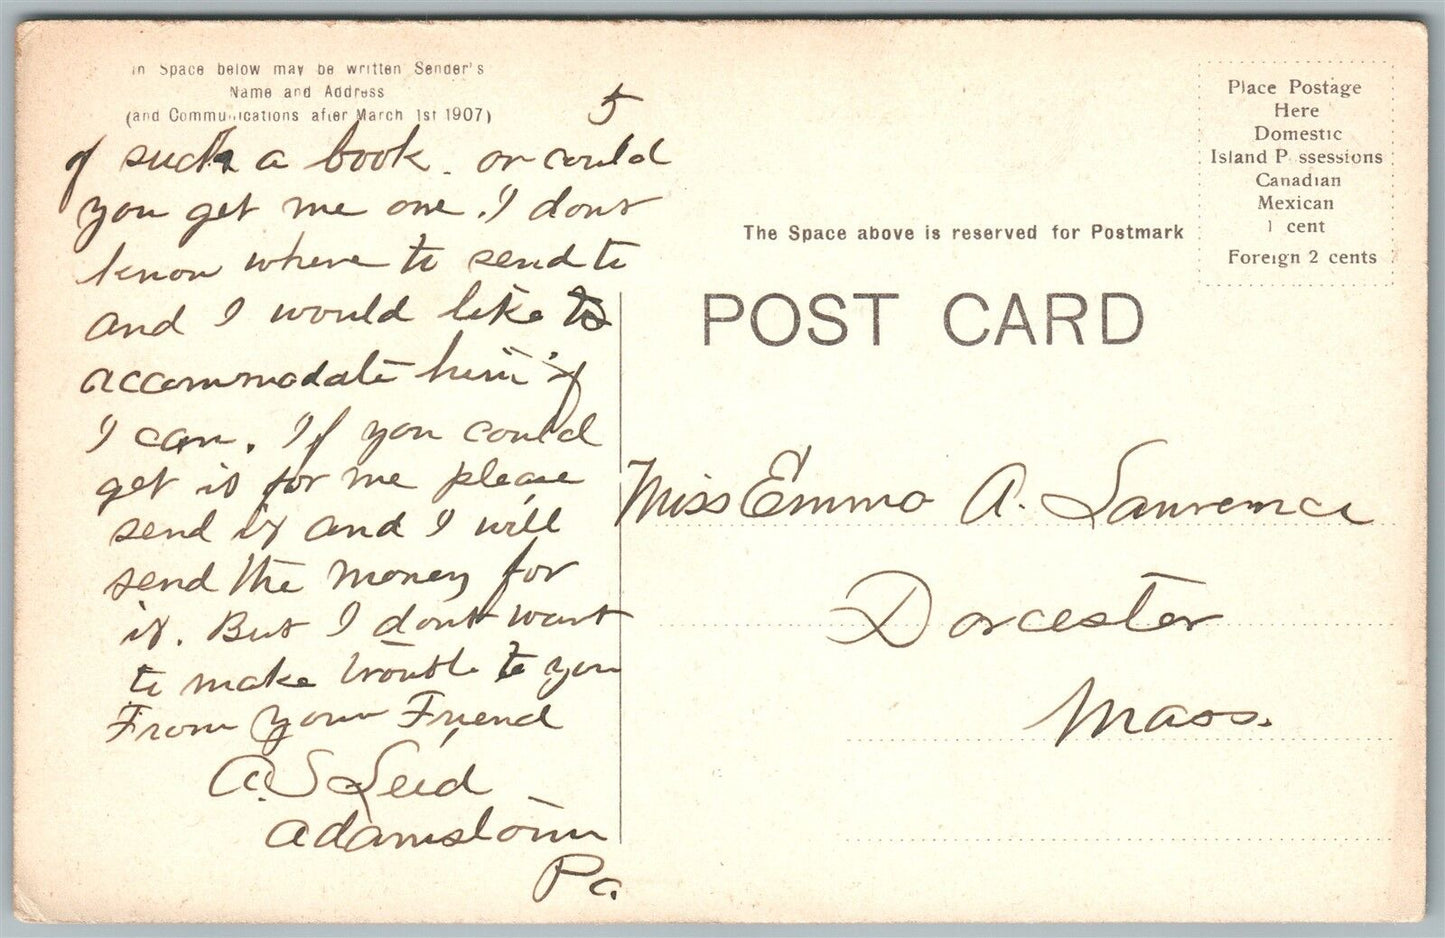 In Space below may be written Sender's
Name and Address
(and Communications after March 1st 1907)
5
of such a book. or could
you get me one. I dont
know where to send to
and I would like to
accommodate him if
I can. If you could
get it for me please
send it and I will
send the money for
it. But I dont want
to make trouble to you
From your Friend
A. S.
Adamstown
Pa.
Place Postage
Here
Domestic
Island P ssessions
Canadian
Mexican
1 cent
Foreign 2 cents
The Space above is reserved for Postmark
POST CARD
Miss Emma A. Lawrence
Dorcester
Mass.